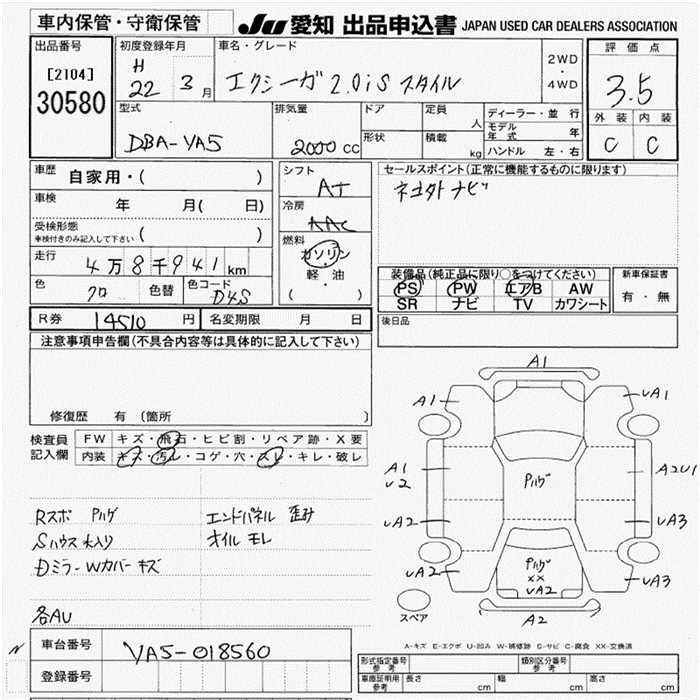 車内保管・守衛保管
JU 愛知 出品申込書 JAPAN USED CAR DEALERS ASSOCIATION
出品番号
[2104]
30580
初度登録年月
H
22 3月
車名・グレード
エクシーガ 2.0iS スタイル
2WD
・
4WD
評価点
3.5
外装 内装
C C
型式
DBA-YA5
排気量
2000 cc
ドア
形状
定員
人
積載
kg
ディーラー・並行
モデル年式 年
ハンドル 左・右
車歴 自家用・( )
車検 年 月( 日)
受検形態
車検付きのみ記入して下さい ( )
走行
4万8千941km
色 クロ 色替
色コード D4S
シフト
AT
冷房
AAC
燃料
ガソリン
・
軽・油
( )
セールスポイント(正常に機能するものに限ります)
ナビ
装備品(純正品に限り○をつけてください)
PS PW エアB AW
SR ナビ TV カワシート
新車保証書
有・無
R券 14510 円
名変期限 月 日
後日品
注意事項申告欄(不具合内容等は具体的に記入して下さい)
修復歴 有(箇所 )
検査員
記入欄
FW キズ・飛石・ヒビ割・リペア跡・X要
内装 キズ・汚レ・コゲ・穴・スレ・キレ・破レ
Rスポ Pハゲ
エンドパネル 歪み
Sハウス 水入り
オイル モレ
Dミラー Wカバー キズ
各AU
A1
A1
UA1
A1
U2
Pハゲ
A2U1
UA2
UA3
UA2
Pハゲ
XX
UA2
UA3
スペア
A2
A-キズ E-エクボ U-凹み W-補修跡 S-サビ C-腐食 XX-交換済
車台番号
YA5-018560
登録番号
形式指定番号
参考
類別区分番号
参考
車庫証明用
参考
長さ cm
幅 cm
高さ cm